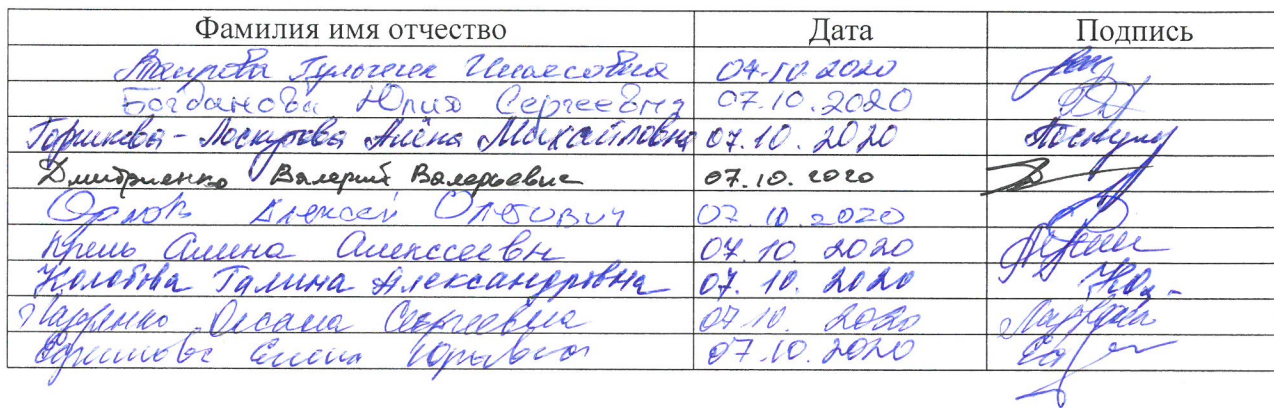 Фамилия имя отчество Дата Подпись
Таирова Гульчечек Ильясовна 07.10.2020
Богданова Юлия Сергеевна 07.10.2020
Горшкова-Лоскутова Алёна Михайловна 07.10.2020
Дмитриенко Валерий Валерьевич 07.10.2020
Орлов Алексей Олегович 07.10.2020
Крель Алина Алексеевн 07.10.2020
Колобова Галина Александровна 07.10.2020
Оксана Сергеевна 07.10.2020
Елена Юрьевна 07.10.2020